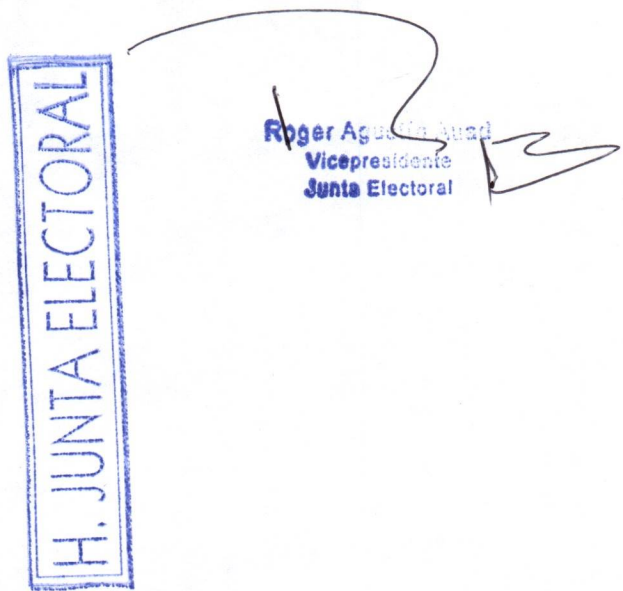 H. JUNTA ELECTORAL
Roger Agustín Auad
Vicepresidente
Junta Electoral